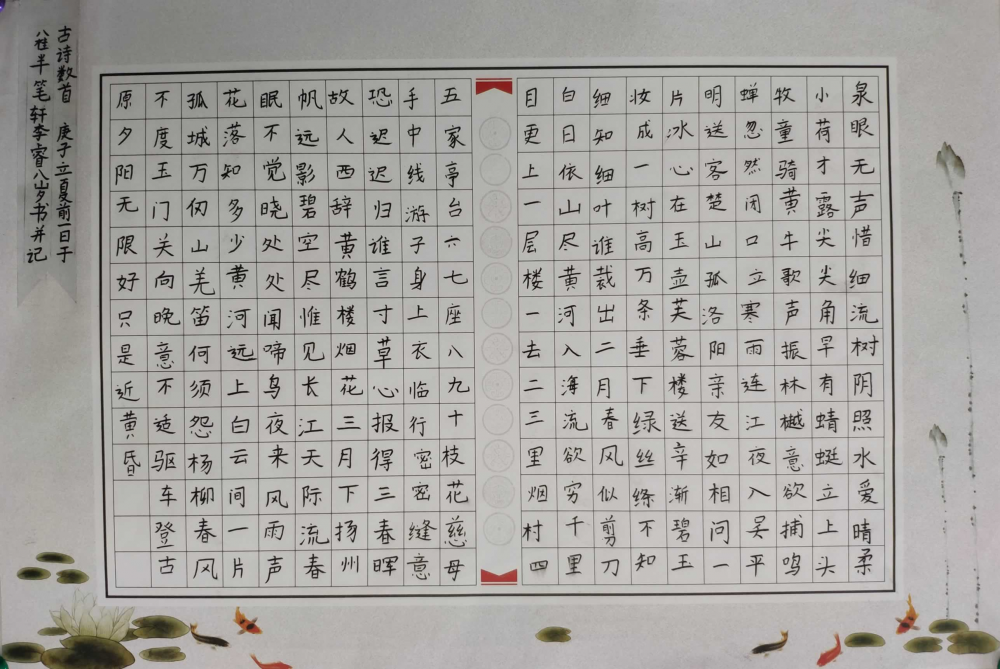 泉眼无声惜细流树阴照水爱晴柔
小荷才露尖尖角早有蜻蜓立上头
牧童骑黄牛歌声振林樾意欲捕鸣
蝉忽然闭口立寒雨连江夜入吴平
明送客楚山孤洛阳亲友如相问一
片冰心在玉壶芙蓉楼送辛渐碧玉
妆成一树高万条垂下绿丝绦不知
细知细叶谁裁出二月春风似剪刀
白日依山尽黄河入海流欲穷千里
目更上一层楼一去二三里烟村四
五家亭台六七座八九十枝花慈母
手中线游子身上衣临行密密缝意
恐迟迟归谁言寸草心报得三春晖
故人西辞黄鹤楼烟花三月下扬州
帆远影碧空尽惟见长江天际流春
眠不觉晓处处闻啼鸟夜来风雨声
花落知多少黄河远上白云间一片
孤城万仞山羌笛何须怨杨柳春风
不度玉门关向晚意不适驱车登古
原夕阳无限好只是近黄昏
古诗数首 庚子立夏前一日于
八桂半笔轩李睿八岁书并记